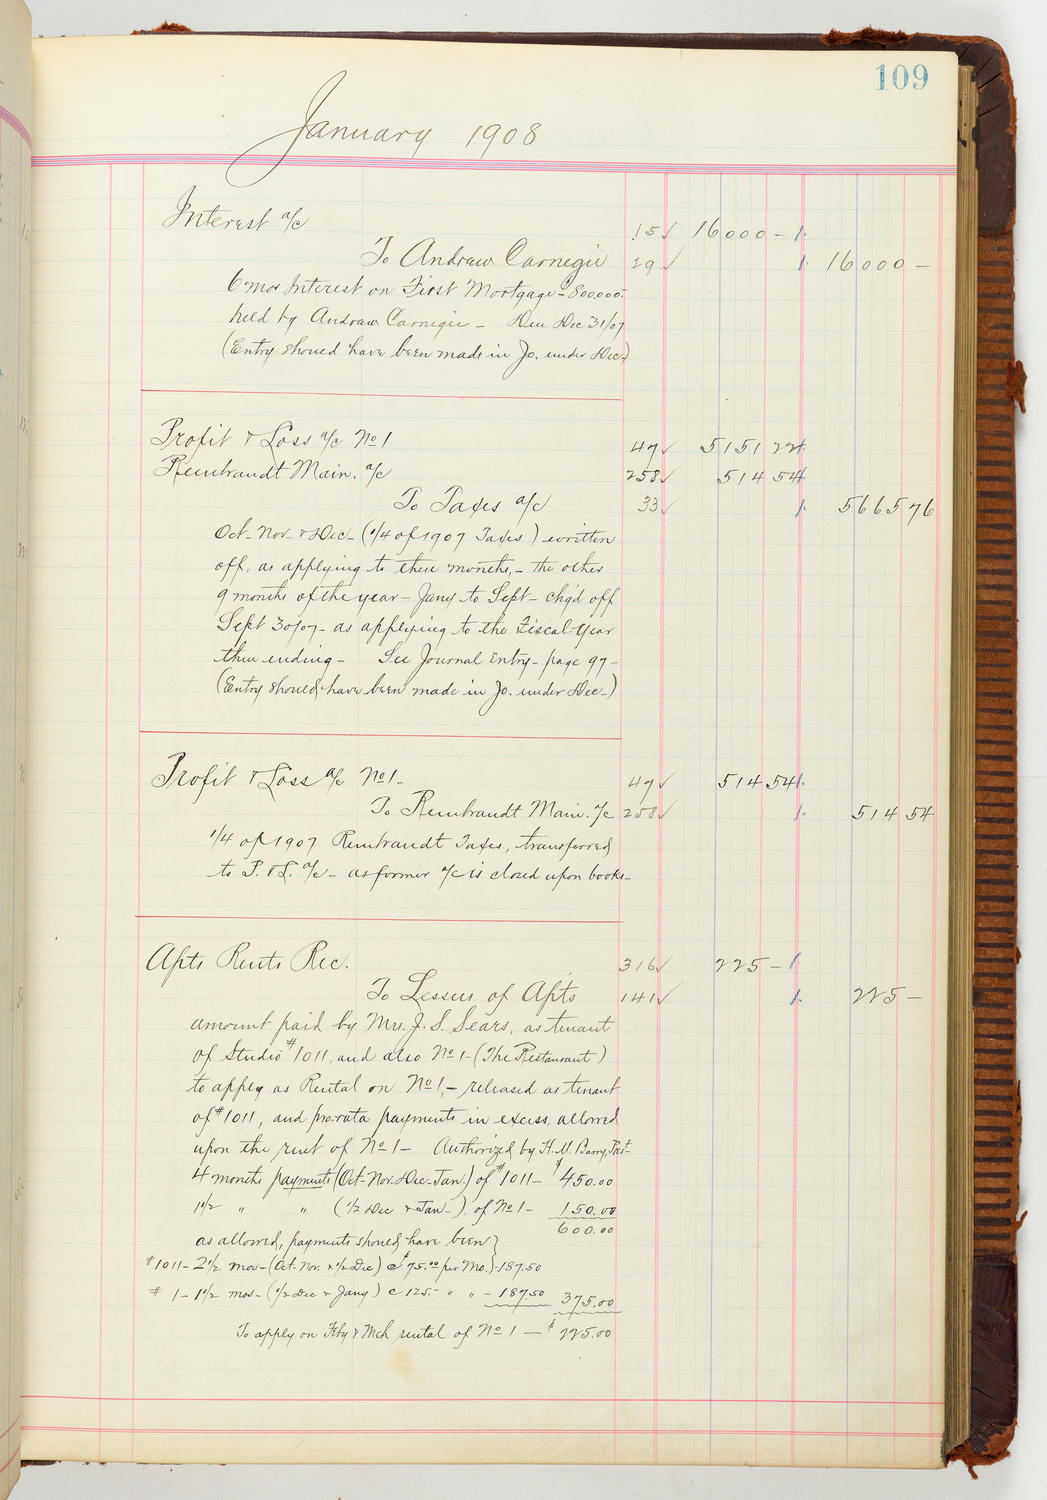 109
January 1908
Interest a/c 15 ✓ 16000 -
To Andrew Carnegie 29 ✓ 16000 -
6 mos Interest on First Mortgage - 800,000.
held by Andrew Carnegie - Due Dec 31/07
(Entry should have been made in Jo. under Dec.)
Profit & Loss a/c No 1 47 ✓ 5151 22
Rembrandt Main. a/c 258 ✓ 514 54
To Taxes a/c 33 ✓ 5665 76
Oct- Nov- & Dec- (1/4 of 1907 Taxes) written
off, as applying to these months, - the other
9 months of the year - Jany to Sept - chg'd off
Sept 30/07 - as applying to the Fiscal Year
then ending - See Journal Entry - page 97 -
(Entry should have been made in Jo. under Dec-)
Profit & Loss a/c No 1 - 47 ✓ 514 54
To Rembrandt Main. a/c 258 ✓ 514 54
1/4 of 1907 Rembrandt Taxes, transferred
to P. & L. a/c - as former a/c is closed upon books -
Apts Rents Rec. 316 ✓ 225 -
To Lessees of Apts 141 ✓ 225 -
amount paid by Mrs. J. S. Sears, as tenant
of Studio #1011, and also No 1 - (The Restaurant)
to apply as Rental on No 1, - released as tenant
of #1011, and pro-rata payments in excess, allowed
upon the rent of No 1 - Authorized by H. M. Barry, Prest-
4 months payments (Oct-Nov-Dec-Jan.) of #1011 - $450.00
1 1/2 " " (1/2 Dec & Jan-) of No 1 - 150.00
600.00
as allowed, payments should have been }
#1011 - 2 1/2 mos - (Oct. Nov. & 1/2 Dec) @ $75.00 per Mo.} - 187.50
# 1 - 1 1/2 mos - (1/2 Dec & Jany) @ 125.- " " - 187.50 375.00
To apply on Feby & Mch rental of No 1 - $225.00